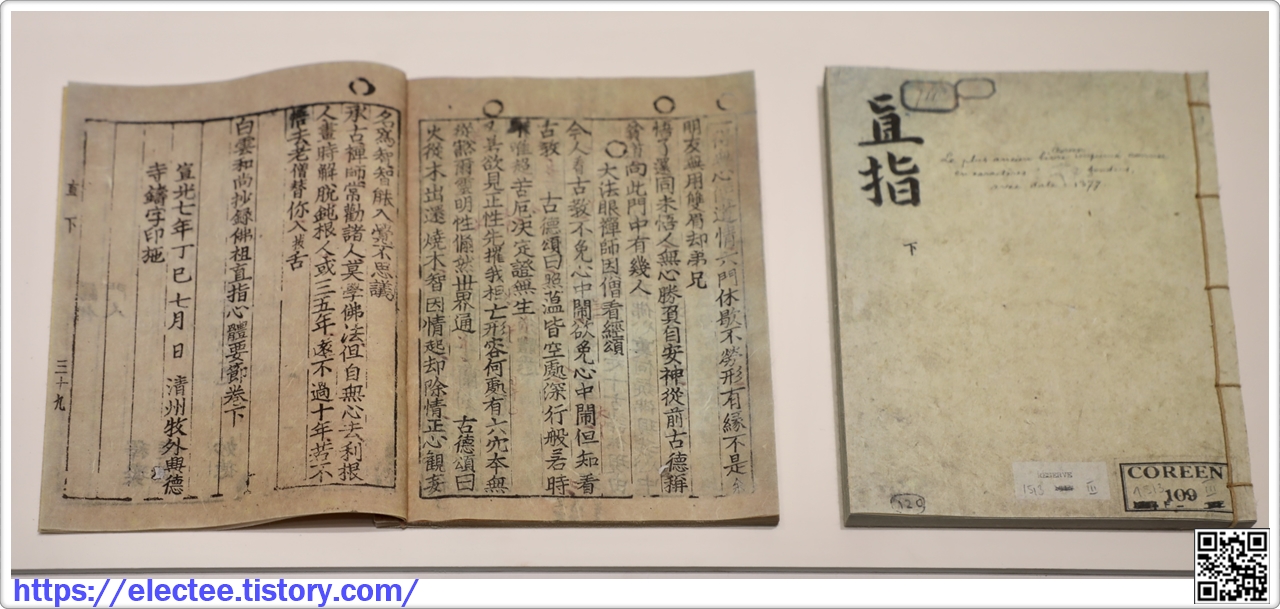 心道情六門休歇不勞形有緣不是
明友無用雙眉却弟兄
悟了還同未悟人無心勝負自安神從前古德稱
向此門中有幾人
大法眼禪師因僧看經頌
今人看古教不免心中鬧欲免心中鬧但知看
古教 古德頌曰照蘊皆空處深行般若時
唯超苦厄決定證無生
欲見正性先摧我相亡形容何處有六宂本無
縱豁爾靈明性翛然世界通 古德頌曰
火從木出還燒木智因情起却除情正心觀妄
名爲智智能入實不思議
古禪師常勸諸人莫學佛法但自無心去利根
人晝時解脫鈍根人或三五年遠不過十年若不
悟去老僧替你入拔舌
白雲和尚抄錄佛祖直指心體要節卷下
宣光七年丁巳七月 日 清州牧外興德
寺鑄字印施
直 下
三十九
直指
下
Le plus ancien livre imprimé connu
date = 1377
COREEN
109
https://electee.tistory.com/